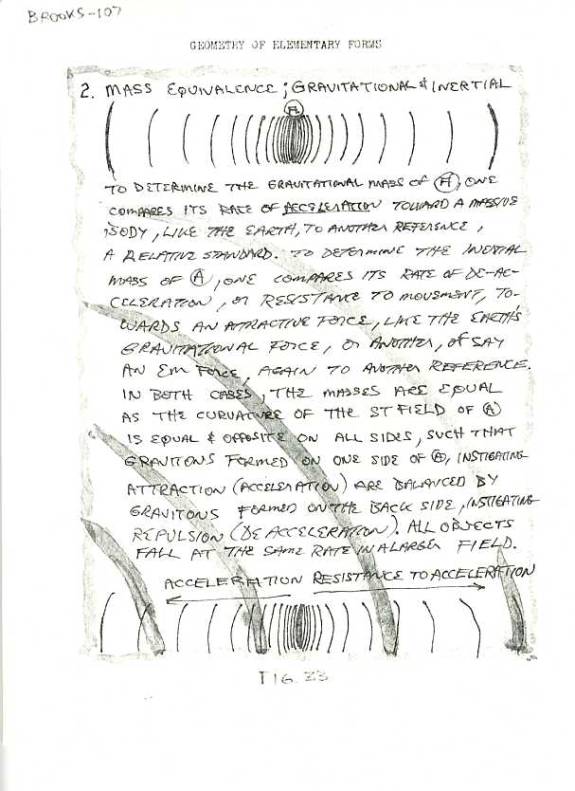 BROOKS-107
GEOMETRY OF ELEMENTARY FORMS
2. MASS EQUIVALENCE; GRAVITATIONAL & INERTIAL
A
TO DETERMINE THE GRAVITATIONAL MASS OF A, ONE
COMPARES ITS RATE OF ACCELERATION TOWARD A MASSIVE
BODY, LIKE THE EARTH, TO ANOTHER REFERENCE,
A RELATIVE STANDARD. TO DETERMINE THE INERTIAL
MASS OF A, ONE COMPARES ITS RATE OF DE-AC-
CELERATION, OR RESISTANCE TO MOVEMENT, TO-
WARDS AN ATTRACTIVE FORCE, LIKE THE EARTH'S
GRAVITATIONAL FORCE, OR ANOTHER, OF SAY
AN EM FORCE, AGAIN TO ANOTHER REFERENCE.
IN BOTH CASES, THE MASSES ARE EQUAL
AS THE CURVATURE OF THE ST FIELD OF A
IS EQUAL & OPPOSITE ON ALL SIDES, SUCH THAT
GRAVITONS FORMED ON ONE SIDE OF A, INSTIGATING
ATTRACTION (ACCELERATION) ARE BALANCED BY
GRAVITONS FORMED ON THE BACK SIDE, INSTIGATING
REPULSION (DEACCELERATION). ALL OBJECTS
FALL AT THE SAME RATE IN A LARGER FIELD.
ACCELERATION RESISTANCE TO ACCELERATION
FIG. 33